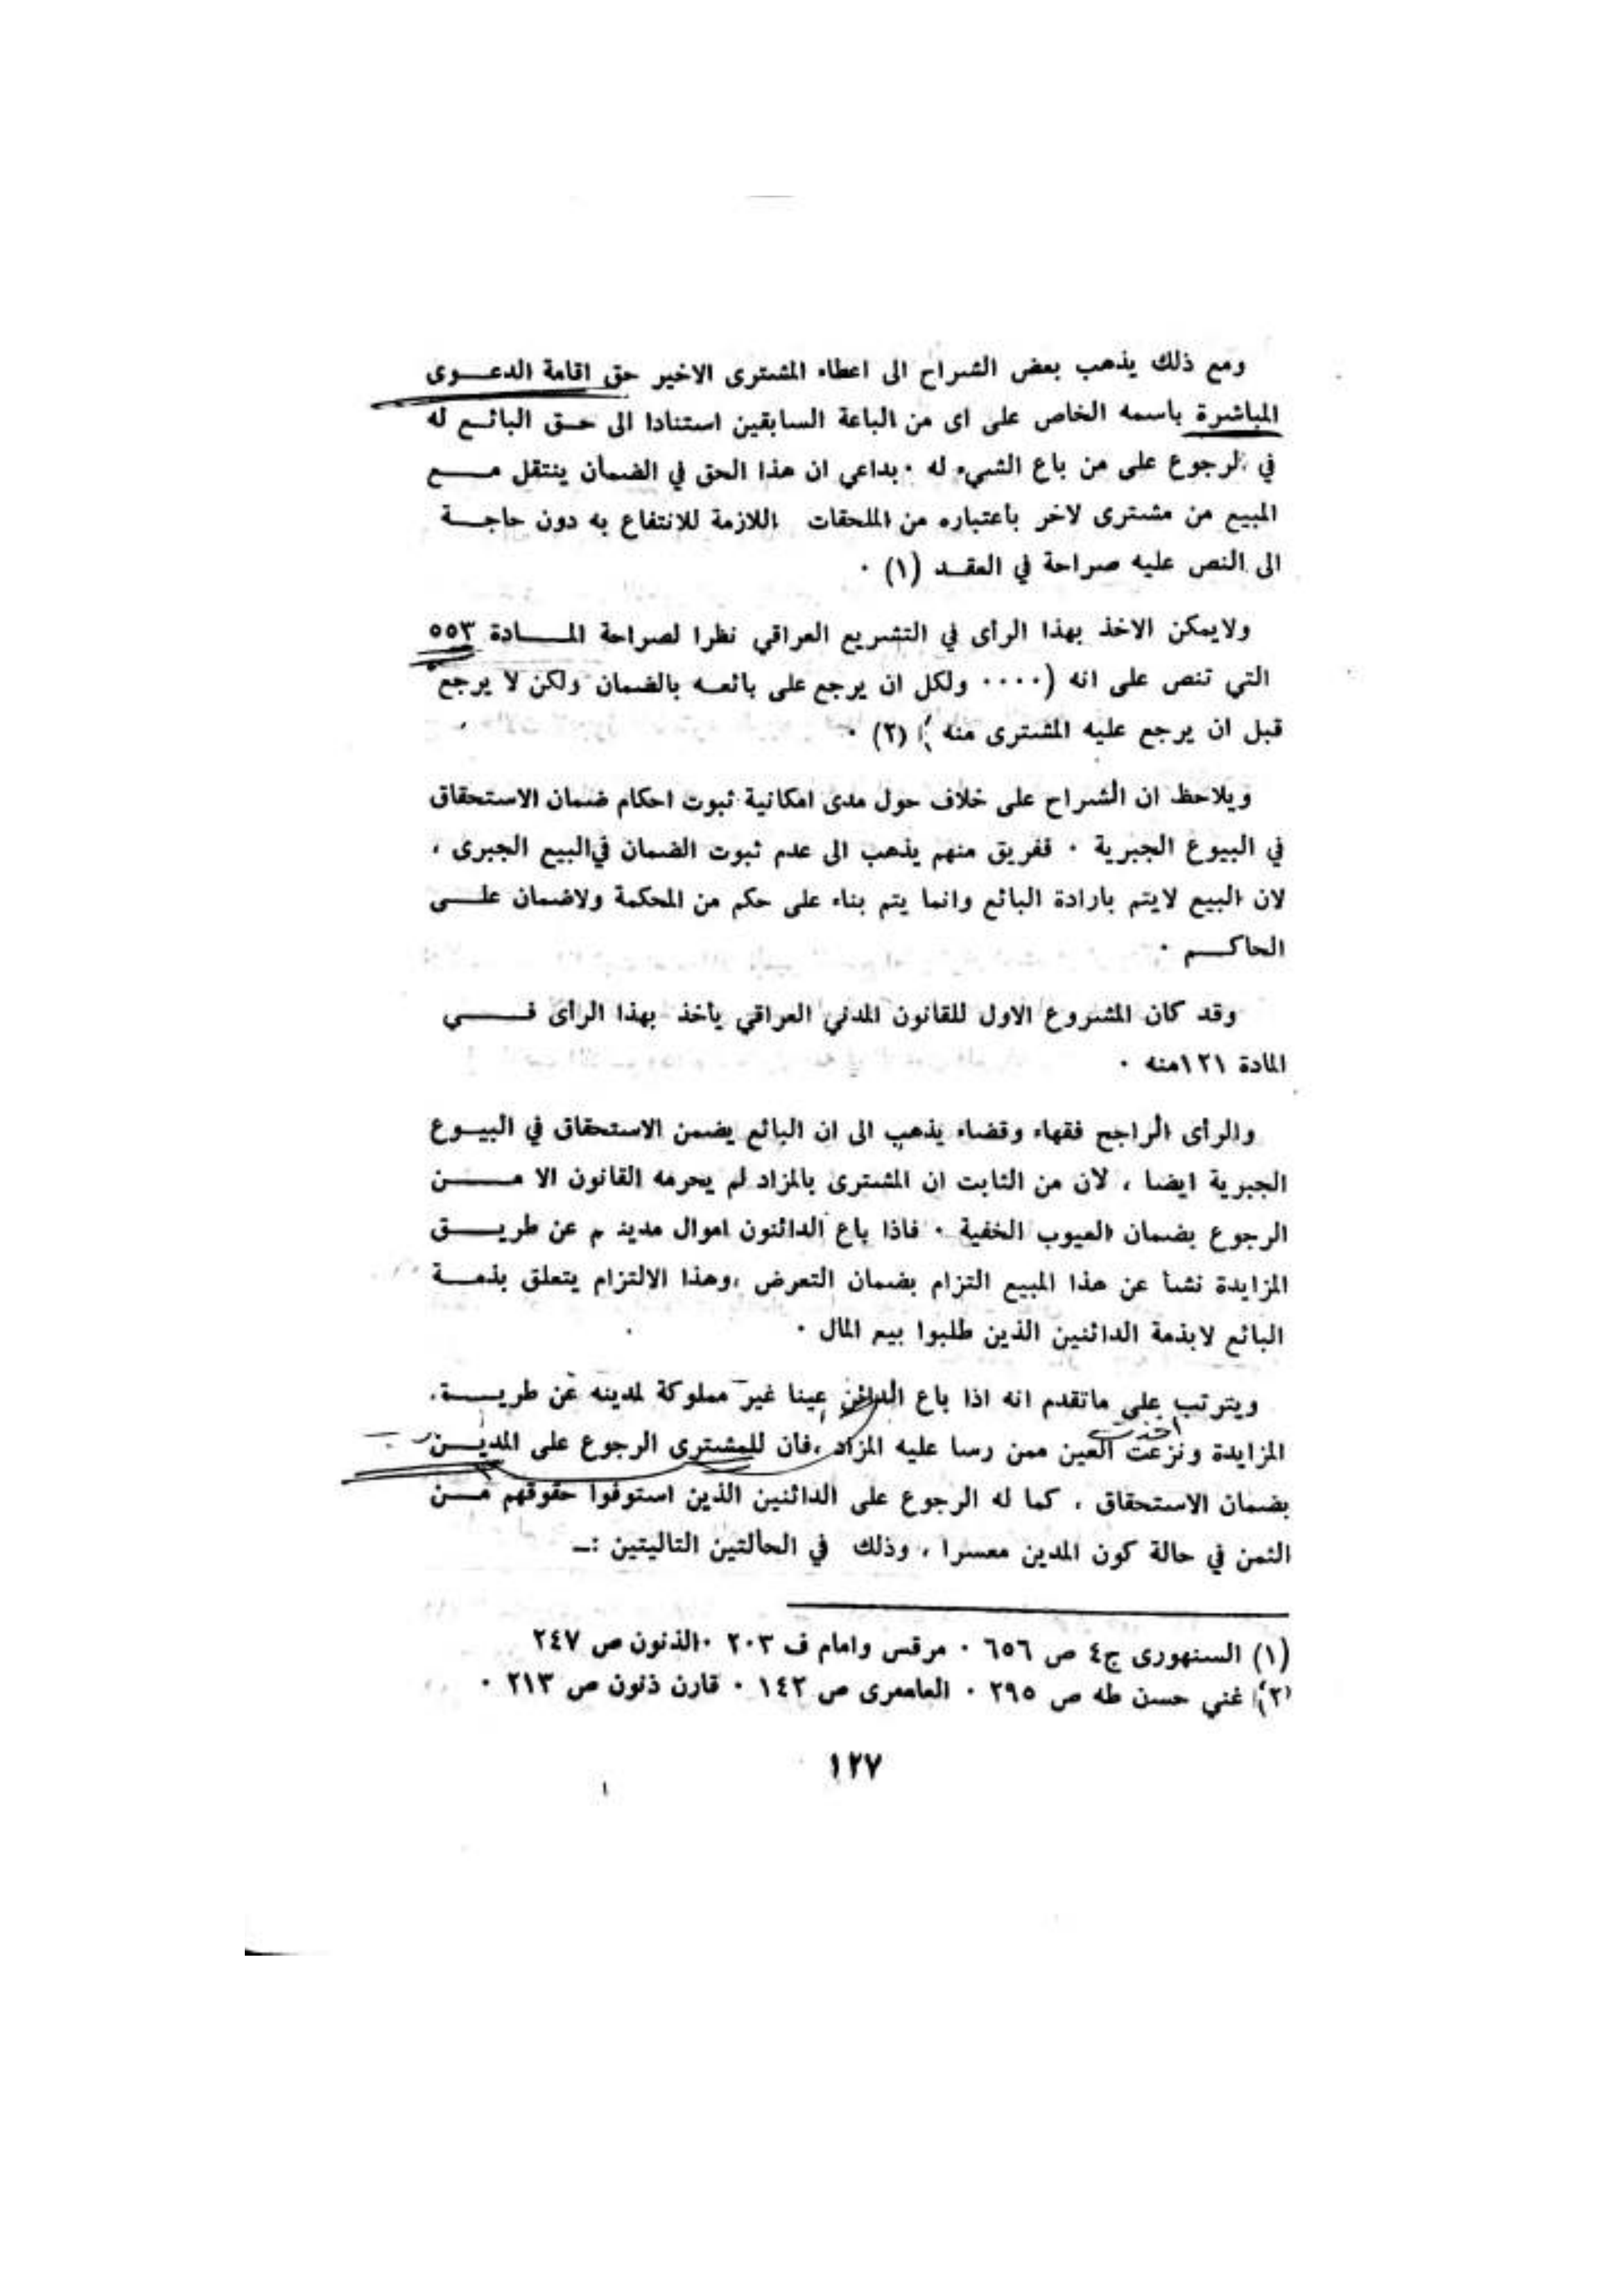 ومع ذلك يذهب بعض الشراح الى اعطاء المشترى الاخير حق اقامة الدعوى
المباشرة باسمه الخاص على اى من الباعة السابقين استنادا الى حق البائع له
في الرجوع على من باع الشيء له ٠ بداعي ان هذا الحق في الضمان ينتقل مع
المبيع من مشترى لاخر باعتباره من الملحقات اللازمة للانتفاع به دون حاجة
الى النص عليه صراحة في العقد (١) ٠
ولايمكن الاخذ بهذا الرأى في التشريع العراقي نظرا لصراحة المادة ٥٥٣
التي تنص على انه (٠٠٠٠ ولكل ان يرجع على بائعه بالضمان ولكن لا يرجع
قبل ان يرجع عليه المشترى منه) (٢) ٠
ويلاحظ ان الشراح على خلاف حول مدى امكانية ثبوت احكام ضمان الاستحقاق
في البيوع الجبرية ٠ ففريق منهم يذهب الى عدم ثبوت الضمان في البيع الجبرى ،
لان البيع لايتم بارادة البائع وانما يتم بناء على حكم من المحكمة ولاضمان على
الحاكم ٠
وقد كان المشروع الاول للقانون المدني العراقي يأخذ بهذا الرأى في
المادة ١٢١منه ٠
والرأى الراجح فقهاء وقضاء يذهب الى ان البائع يضمن الاستحقاق في البيوع
الجبرية ايضا ، لان من الثابت ان المشترى بالمزاد لم يحرمه القانون الا من
الرجوع بضمان العيوب الخفية ٠ فاذا باع الدائنون اموال مدينهم عن طريق
المزايدة نشأ عن هذا المبيع التزام بضمان التعرض ،وهذا الالتزام يتعلق بذمة
البائع لابذمة الدائنين الذين طلبوا بيع المال ٠
ويترتب على ماتقدم انه اذا باع الدائن عينا غير مملوكة لمدينه عن طريق
اخذت
المزايدة ونزعت العين ممن رسا عليه المزاد ،فان للمشترى الرجوع على المدين
بضمان الاستحقاق ، كما له الرجوع على الدائنين الذين استوفوا حقوقهم من
الثمن في حالة كون المدين معسرا ، وذلك في الحالتين التاليتين :ـ
(١) السنهورى ج٤ ص ٦٥٦ ٠ مرقس وامام ف ٢٠٣ ٠الذنون ص ٢٤٧
(٢) غني حسن طه ص ٢٩٥ ٠ العامرى ص ١٤٢ ٠ قارن ذنون ص ٢١٣ ٠
١٢٧